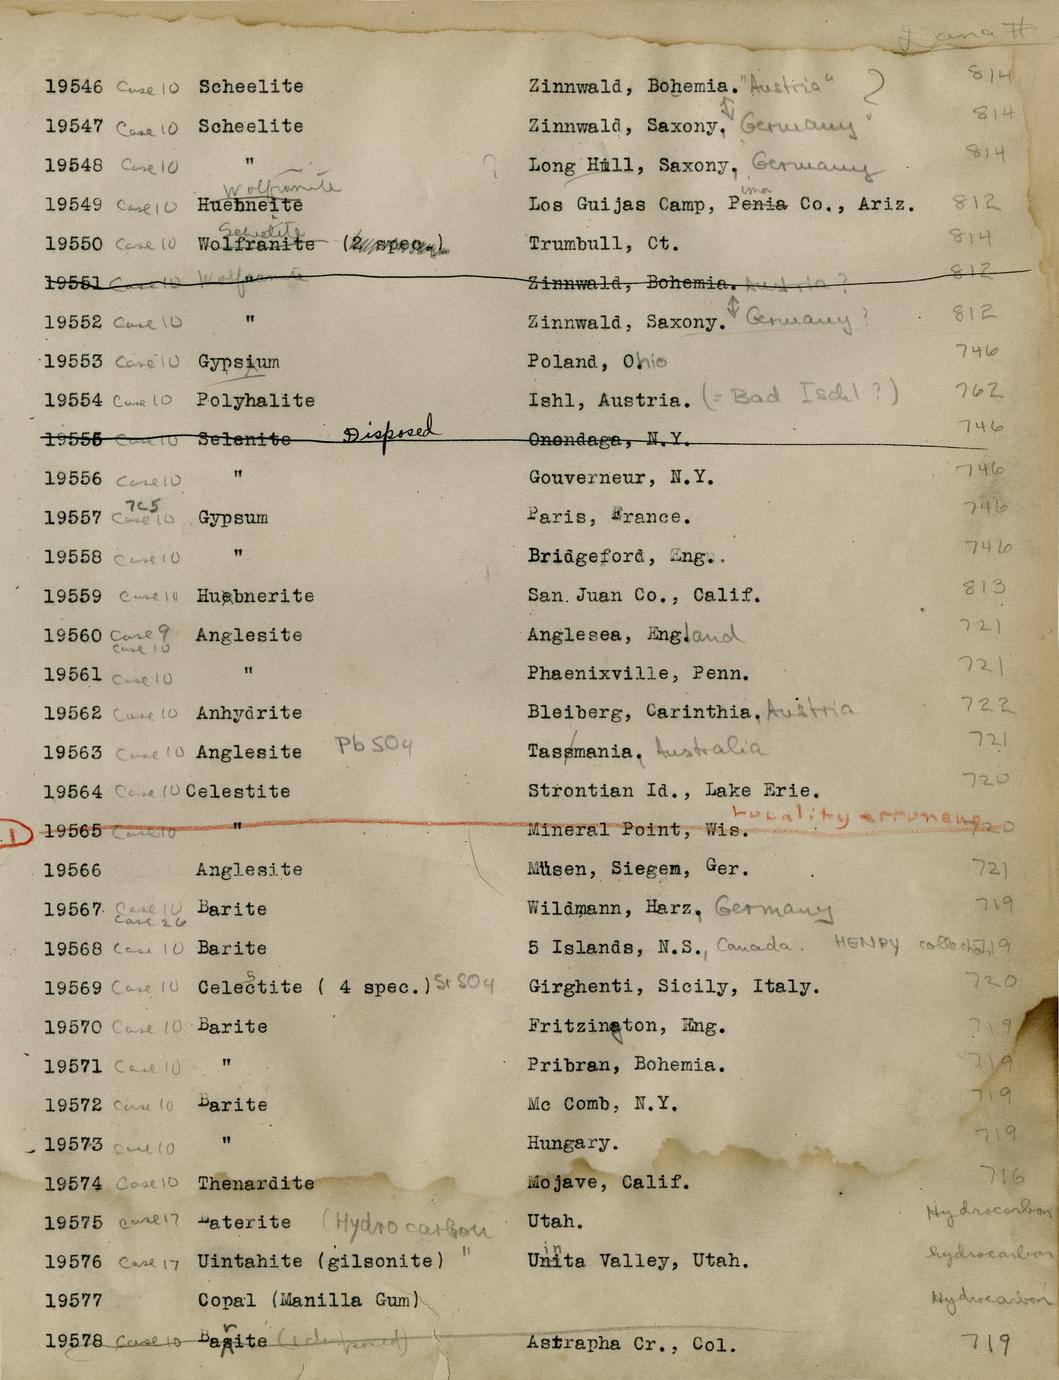 Dana #
19546 Case 10 Scheelite Zinnwald, Bohemia. "Austria" ? 814
19547 Case 10 Scheelite Zinnwald, Saxony, Germany" 814
19548 Case 10 " ? Long Hill, Saxony, Germany 814
Wolframite
19549 Case 10 Huebneite Los Guijas Camp, Penia Co., Ariz. 812
ima
19550 Case 10 Wolfranite (2 spec.) Trumbull, Ct. 814
19551 Case 10 Wolframite Zinnwald, Bohemia. Austria? 812
19552 Case 10 " Zinnwald, Saxony. Germany? 812
19553 Case 10 Gypsium Poland, Ohio 746
19554 Case 10 Polyhalite Ishl, Austria. (= Bad Ischl?) 762
19555 Case 10 Selenite Disposed Onondaga, N.Y. 746
19556 Case 10 " Gouverneur, N.Y. 746
7C5
19557 Case 10 Gypsum Paris, France. 746
19558 Case 10 " Bridgeford, Eng.. 746
19559 Case 10 Huebnerite San Juan Co., Calif. 813
19560 Case 9 Anglesite Anglesea, England 721
Case 10
19561 Case 10 " Phaenixville, Penn. 721
19562 Case 10 Anhydrite Bleiberg, Carinthia, Austria 722
19563 Case 10 Anglesite PbSO4 Tassmania. Australia 721
19564 Case 10 Celestite Strontian Id., Lake Erie. 720
Locality erroneus
1 19565 Case 10 " Mineral Point, Wis. 720
19566 Anglesite Müsen, Siegen, Ger. 721
19567 Case 10 Barite Wildmann, Harz, Germany 719
Case 26
19568 Case 10 Barite 5 Islands, N.S., Canada. HENRY collection 719
s
19569 Case 10 Celectite ( 4 spec.) SrSO4 Girghenti, Sicily, Italy. 720
19570 Case 10 Barite Fritzington, Eng. 719
19571 Case 10 " Pribran, Bohemia. 719
19572 Case 10 Barite Mc Comb, N.Y. 719
19573 Case 10 " Hungary. 719
19574 Case 10 Thenardite Mojave, Calif. 716
19575 Case 17 aterite (Hydrocarbon Utah. Hydrocarbon
in
19576 Case 17 Uintahite (gilsonite) " Unita Valley, Utah. hydrocarbon
19577 Copal (Manilla Gum) Hydrocarbon
r
19578 Case 10 Basite (1 disposed) Astrapha Cr., Col. 719